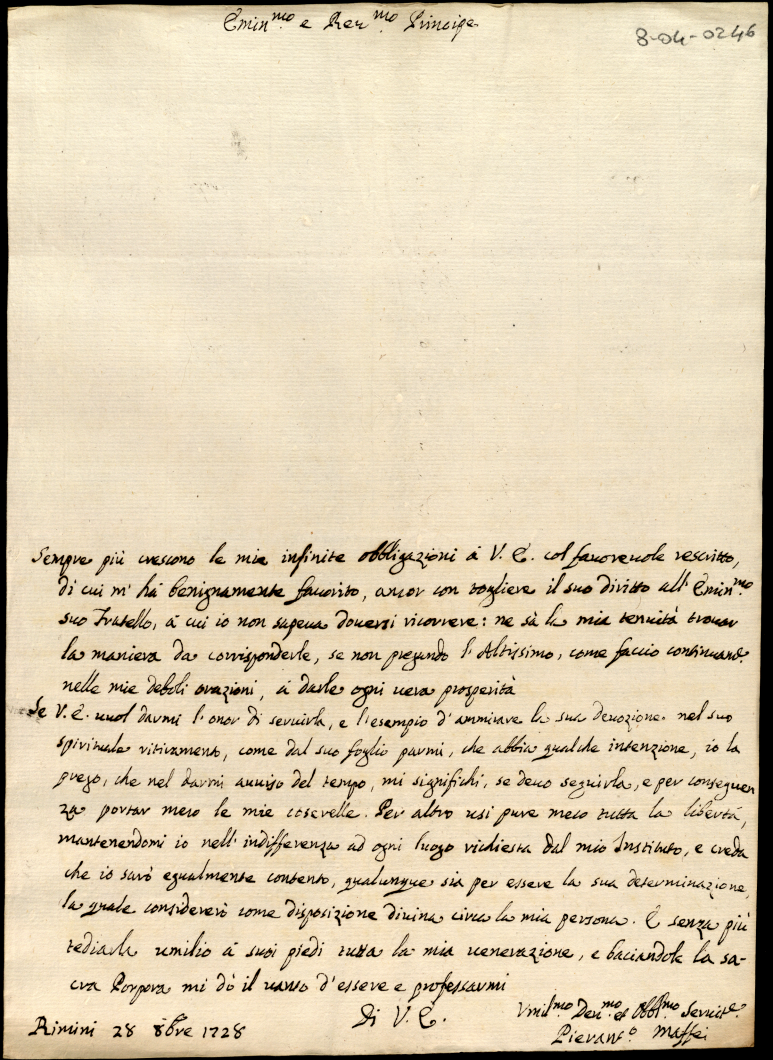 Emin.mo e Reu.mo Principe
8-04-0246
Sempre più crescono le mie infinite obbligazioni à V. E. col fauoreuole rescritto,
di cui m' hà benignamente fauorito, ancor con togliere il suo diritto all' Emin.mo
suo Fratello, à cui io non sapeua douersi ricorrere: ne sà la mia tenuità trouar
la maniera da corrisponderle, se non pregando l' Altissimo, come faccio continuam.e
nelle mie deboli orazioni, à darle ogni uera prosperità
Se V. E. uuol darmi l' onor di seruirla, e l' esempio d' ammirare la sua deuozione nel suo
spirituale ritiramento, come dal suo foglio parmi, che abbia qualche intenzione, io la
prego, che nel darmi auuiso del tempo, mi significhi, se deuo seguirla, e per conseguen
za portar meco le mie coserelle. Per altro usi pure meco tutta la libertà,
mantenendomi io nell' indifferenza ad ogni luogo richiesta dal mio Instituto, e creda
che io sarò egualmente contento, qualunque sia per essere la sua determinazione,
la quale considererò come disposizione diuina circa la mia persona. E senza più
tediarla umilio à suoi piedi tutta la mia uenerazione, e baciandole la sa-
cra Porpora mi dò il uanto d' essere e professarmi
Di V. E.
Vmil.mo Deu.mo et Obbl.mo Seruit.e
Pierant.o Maffei
Rimini 28 8bre 1728